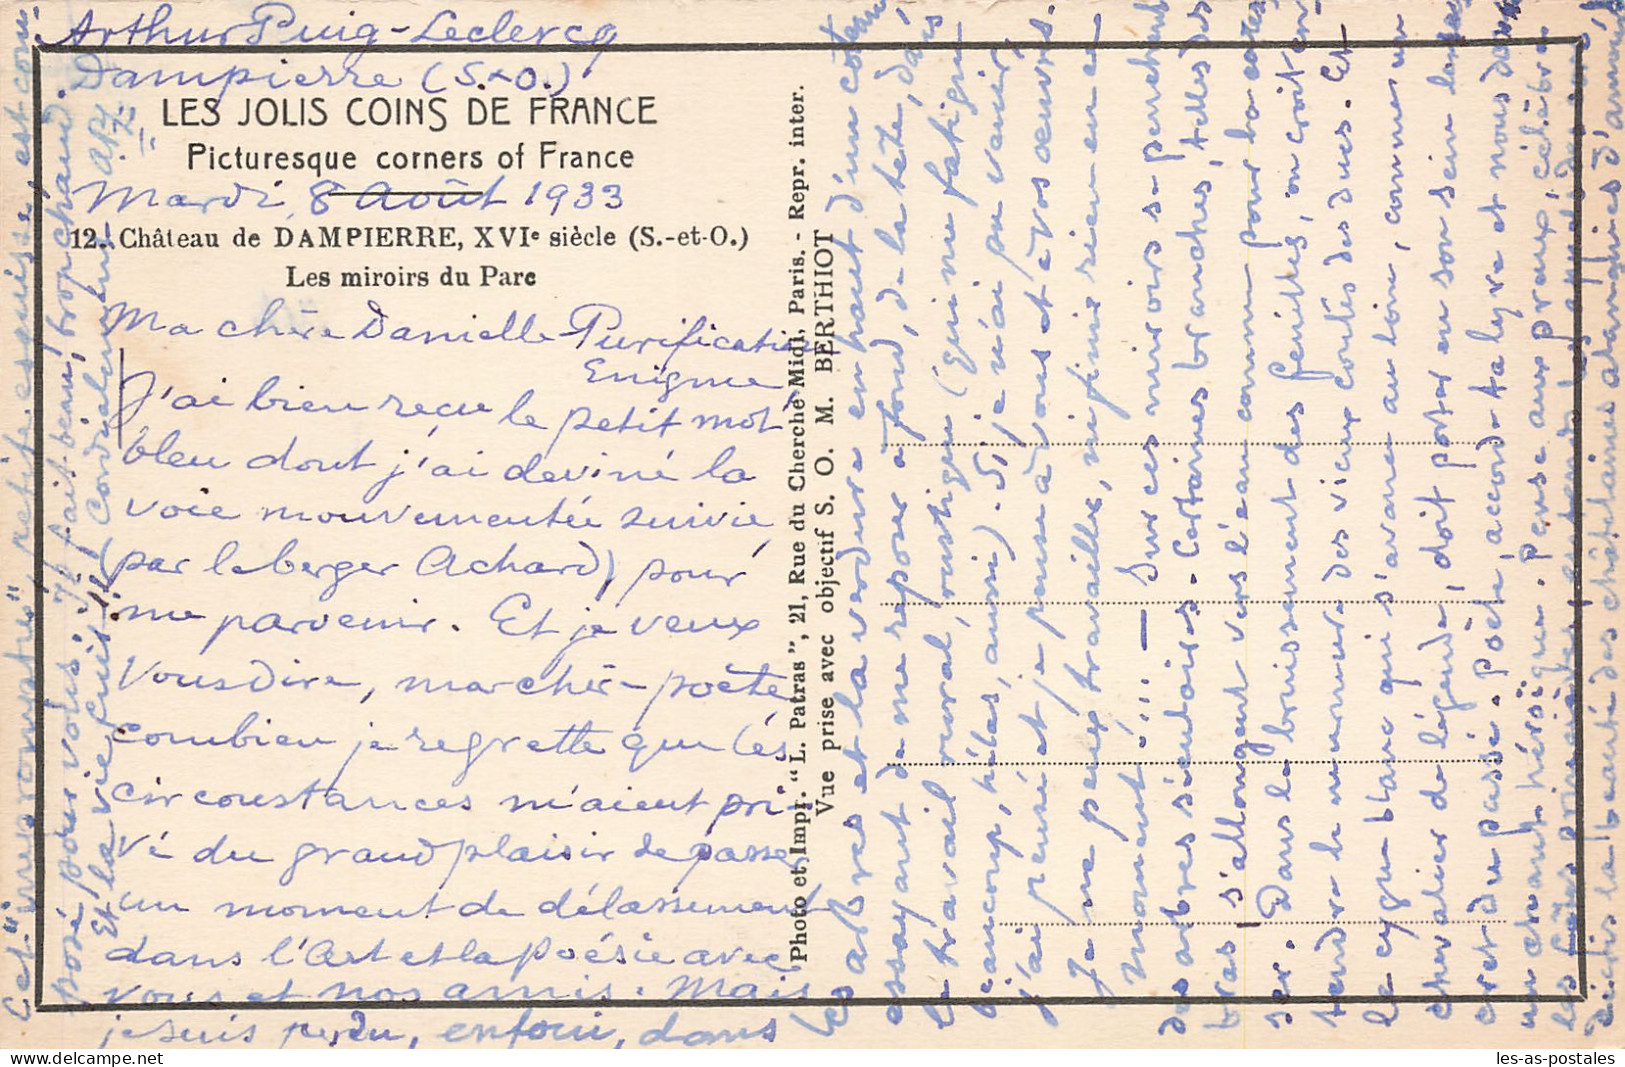 Arthur Puig-Leclercq
Dampierre (S.-O.)
LES JOLIS COINS DE FRANCE
Picturesque corners of France
Mardi 8 Août 1933
12. Château de DAMPIERRE, XVIe siècle (S.-et-O.)
Les miroirs du Parc
Ma chère Danielle-Purification
Enigme
J'ai bien reçu le petit mot
bleu dont j'ai deviné la
voie mouvementée suivie
(par le berger Achard) pour
me parvenir. Et je veux
vous dire, ma chère poète
combien je regrette que les
circonstances m'aient pri
vé du grand plaisir de passer
un moment de délassement
dans l'Art et la poésie avec
vous et nos amis. Mais
je suis perdu, enfoui, dans
Photo et Impr. "L. Patras", 21, Rue du Cherche Midi, Paris. - Repr. inter.
Vue prise avec objectif S. O. M. BERTHIOT
les arbres et la verdure en haut d'un coteau
essayant de me reposer à fond, de la tête, dans
le travail rural, rustique (qui me fatigue
beaucoup, hélas, aussi). Si je n'ai pu venir,
j'ai pensé et je pense à vous et à vos œuvres.
Je ne peux travailler, ni finir rien en ce
moment!!! — Sur ces miroirs se penchent
des arbres séculaires. Certaines branches, telles des
bras s'allongent vers l'eau comme pour la cares
ser. Dans le bruissement des feuilles, on croit en
tendre le murmure des vieux contes des ducs. Et
le cygne blanc qui s'avance au loin, comme un
chevalier de légende, doit porter en son sein le
cret du passé. Poète, accorde ta lyre et nous donne
un chant héroïque. Pense aux preux, célèbres
les
Décris la beauté des châtelaines
Cet "impromptu", petite esquisse, est com
posé pour vous. Il fait beau, trop chaud.
Et la vie fuit!! Cordialement